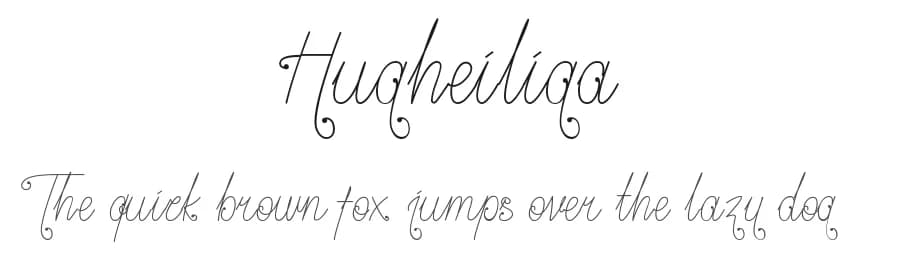 Hugheiliga
The quick brown fox jumps over the lazy dog